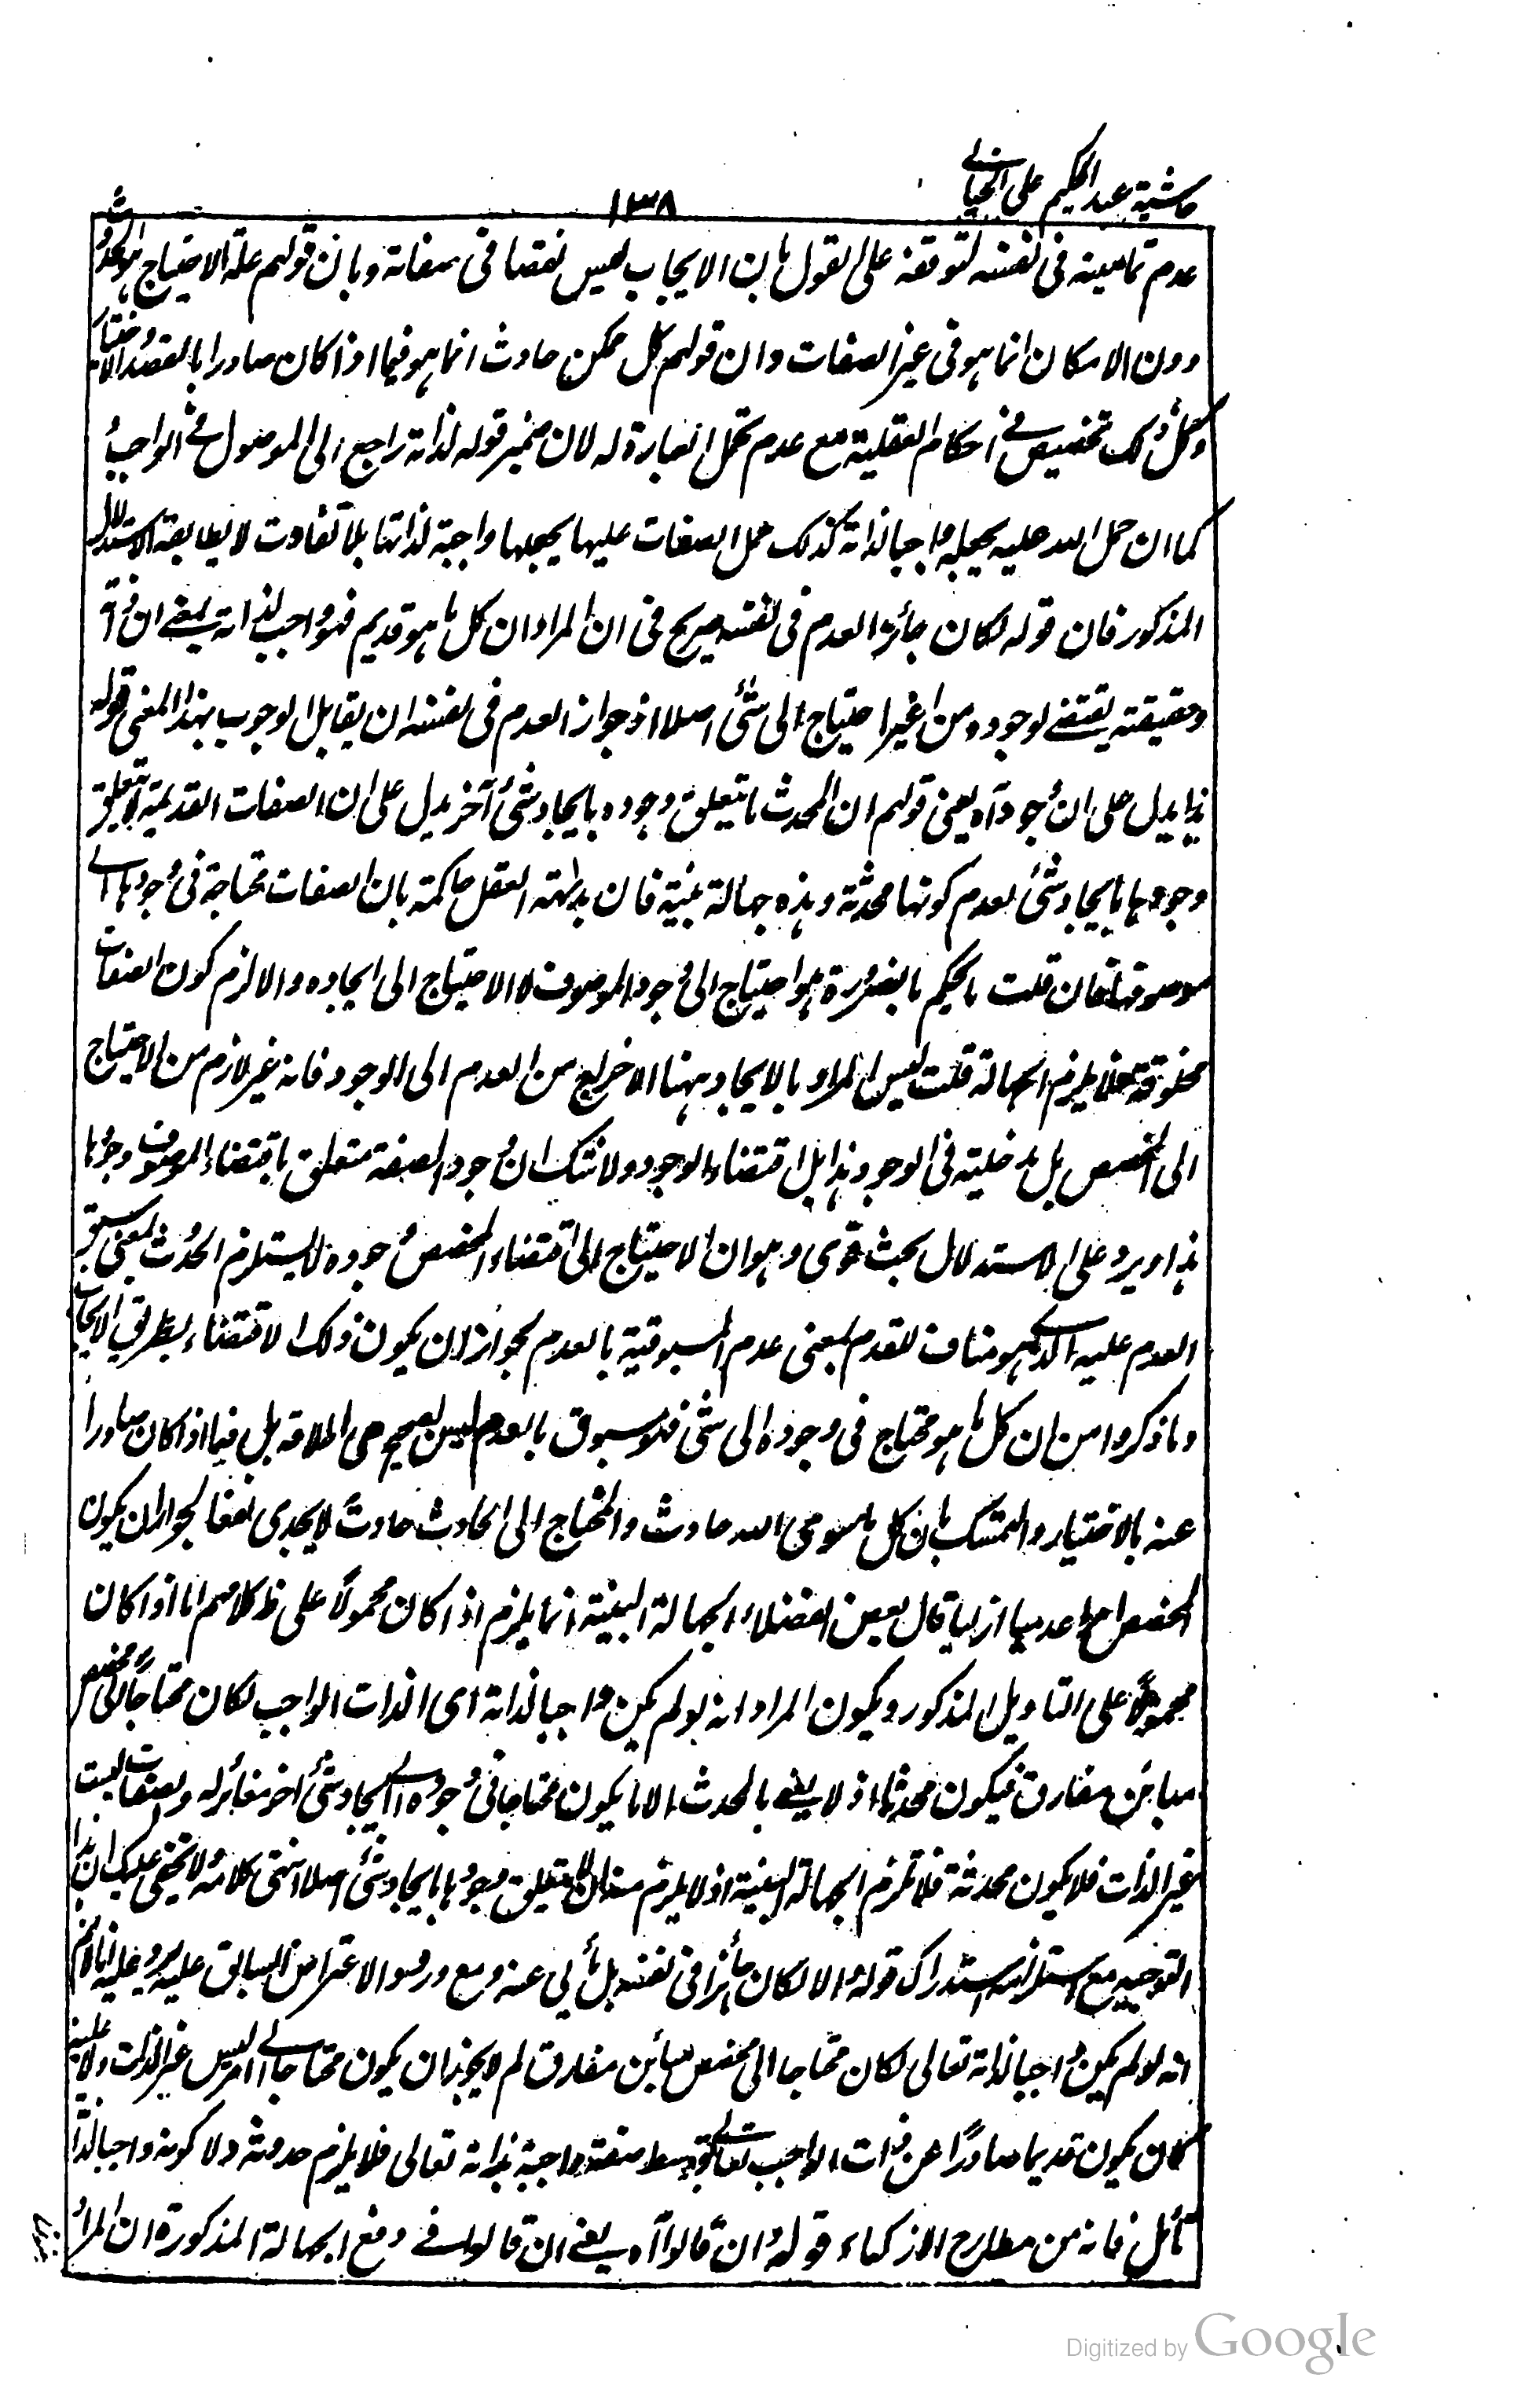 حاشية عبد الحكيم على الخيالى
١٣٨
عدم تماميته فى نفسه لتوقفه على القول بان الايجاب ليس نقصا فى صفاته وبان قولهم علة الاحتياج هو الحدوث
دون الامكان انما هو فى غير الصفات وان قولهم كل ممكن حادث انما هو فيما اذا كان صادرا بالقصد والاختيار
وكل ذلك تخصيص فى احكام العقلية مع عدم تحمل العبارة له لان ضمير قوله لذاته راجع الى الموصول فى الواجب
كما ان حمل الله عليه يجعله واجبا لذاته كذلك حمل الصفات عليها يجعلها واجبة لذاتها بلا تفاوت لا يطابقه الاستدلال
المذكور فان قوله لكان جائز العدم فى نفسه صريح فى ان المراد ان كل ما هو قديم فهو واجب لذاته بمعنى ان ذاته
وحقيقته يقتضى لوجوده من غير احتياج الى شئ اصلا اذ جواز العدم فى نفسه ان يقابل الوجوب بهذا المعنى قوله
هذا يدل على ان وجود آه يعنى قولهم ان المحدث ما يتعلق وجوده بايجاد شئ آخر يدل على ان الصفات القديمة لا يتعلق
وجودها بايجاد شئ لعدم كونها محدثة وهذه جهالة بينة فان بداهة العقل حاكمة بان الصفات محتاجة فى وجودها الى
موصوفها فان قلت ما يحكم بالضرورة هو احتياج الى وجود الموصوف لا الاحتياج الى ايجاده والا لزم كون الصفات
مخلوقة فلا يلزم الجهالة قلت ليس المراد بالايجاد ههنا الاخراج من العدم الى الوجود فانه غير لازم من الاحتياج
الى المخصص بل مدخليته فى الوجود هذا بل اقتضاء الوجود ولا شك ان وجود الصفة متعلق باقتضاء الموصوف وجودها
هذا ويرد على الاستدلال بحث قوى وهو ان الاحتياج الى اقتضاء المخصص وجوده لا يستلزم الحدوث بمعنى سبق
العدم عليه الذى هو مناف للقدم بمعنى عدم المسبوقية بالعدم لجواز ان يكون ذلك الاقتضاء بطريق الايجاب
وما ذكروا من ان كل ما هو محتاج فى وجوده الى شئ فهو مسبوق بالعدم ليس بصحيح على اطلاقه بل فيما اذا كان صادرا
عنه بالاختيار والتمسك بان كل ما سوى الله حادث والمحتاج الى الحادث حادث لا يجدى نفعا لجواز ان يكون
المخصص امرا عدميا ازليا قال بعض الفضلاء الجهالة البينة انما يلزم اذا كان محمولا على ظ كلامهم اما اذا كان
محمولا على التاويل المذكور ويكون المراد انه لو لم يكن واجبا لذاته اى الذات الواجب لكان محتاجا الى مخصص
مباين مفارق فيكون محدثا اذ لا يعنى بالمحدث الا ما يكون محتاجا فى وجوده الى ايجاد شئ اخر مغائر له وصفات ليست
غير الذات فلا يكون محدثة فلا تلزم الجهالة البينة اذ لا يلزم منه ان لا يتعلق وجودها بايجاد شئ اصلا انتهى كلامه لا يخفى عليك ان هذا
التوجيه مع استلزامه استدراك قوله والا لكان جائزا فى نفسه بل يأبى عنه ومع ورود الاعتراض السابق عليه يرد عليه انا لانم
انه لو لم يكن واجبا لذاته تعالى لكان محتاجا الى مخصص مباين مفارق لم لا يجوز ان يكون محتاجا الى امر ليس غير الذات ولا عينه
كان يكون قديما صادرا عن ذات الواجب تعالى بتوسط صفة واجبة لذاته تعالى فلا يلزم حدوثه ولا كونه واجبا لذاته
تأمل فانه من مطارح الاذكياء قوله وان قالوا آه يعنى ان قالوا فى دفع الجهالة المذكورة ان المراد
Digitized by Google